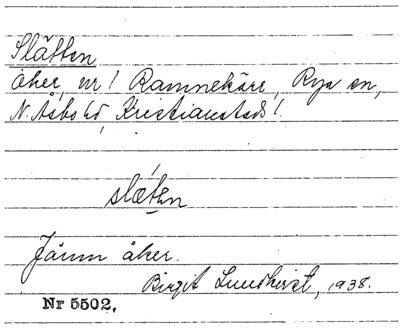 Slätten
åker, nr 1 Ramnekärr, Rya sn,
N. Åsbo hd, Kristianstads l.
slǽten
Jämn åker.
Birgit Lundkvist, 1938.
Nr 5502.